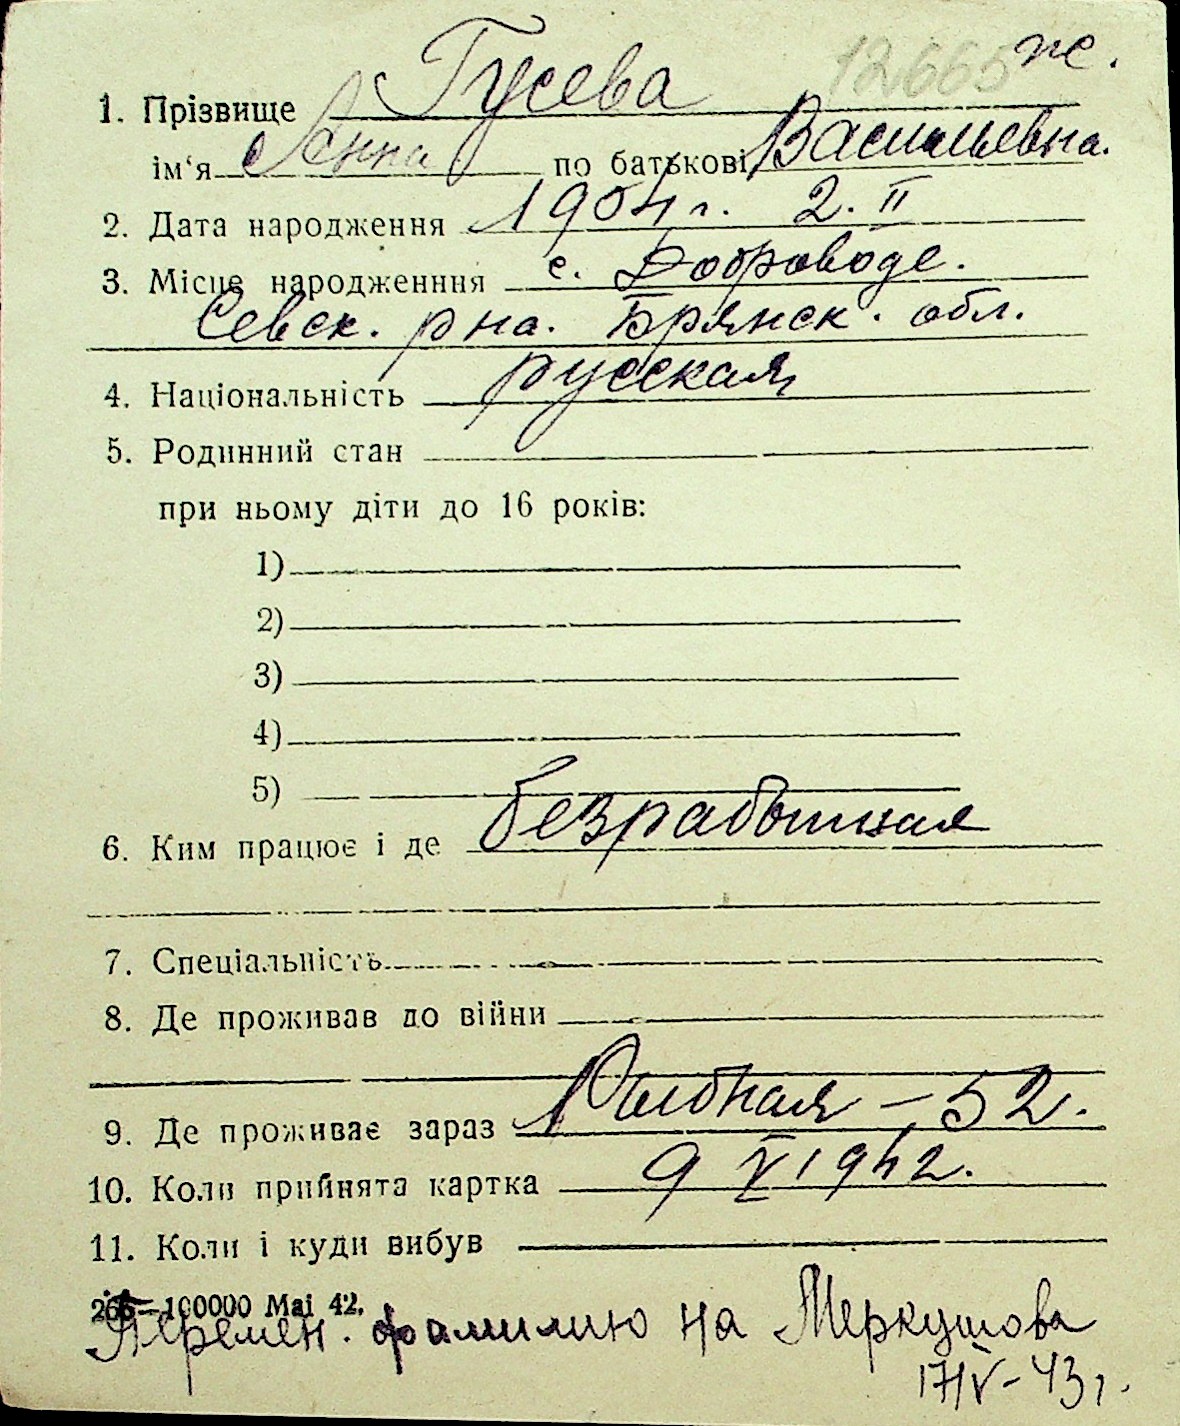 12665 ж.
1. Прізвище Гусева
ім‘я Анна по батькові Васильевна.
2. Дата народження 1904 г. 2. II
3. Місце народженння с. Доброводе.
Севск. рна. Брянск. обл.
4. Національність русская
5. Родинний стан
при ньому діти до 16 років:
1)
2)
3)
4)
5)
6. Ким працює і де безработная
7. Спеціальність
8. Де проживав до війни
9. Де проживає зараз Рыбная – 52.
10. Коли прийнята картка 9 V 1942.
11. Коли і куди вибув
266—100000 Маі 42.
Перемен. фамилию на Меркушова
17/IV - 43 г.